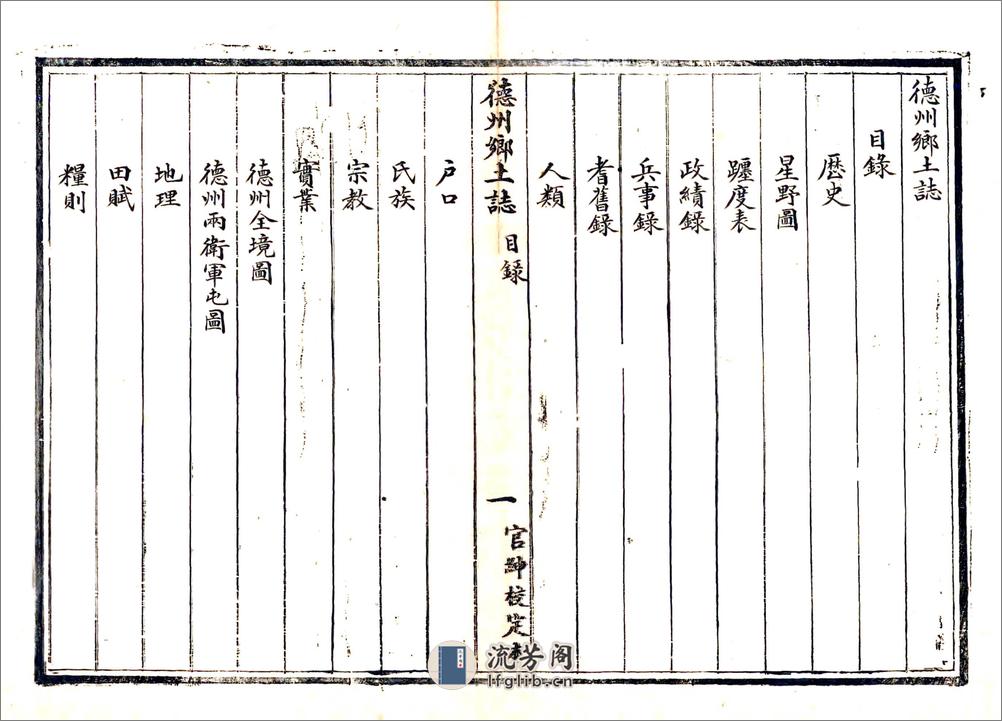 德州鄉土誌
目錄
歷史
星野圖
躔度表
政績錄
兵事錄
耆舊錄
人類
德州鄉土誌 目録 一 官紳校定本
戶口
氏族
宗教
實業
德州全境圖
德州兩衛軍屯圖
地理
田賦
糧則
流芳阁
lfglib.cn